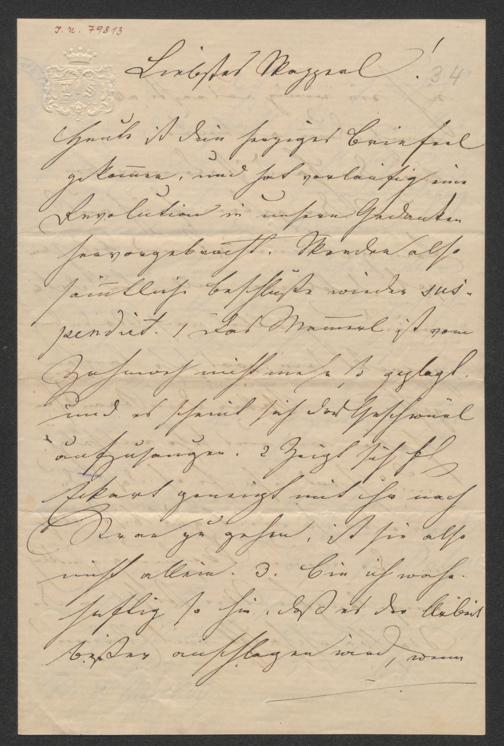 I. N. 79813
34
Liebstes Mopperl!
Heute ist dein herziges Brieferl
gekommen, und hat vorläufig eine
Revolution in unsern Gedanken
hervorgebracht. Werden also
sämmtliche Beschlüße wieder sus-
pendirt. 1 Das Mamerl ist vom
Zahnweh nicht mehr so geplagt.
und es scheint sich das Geschwürl
aufzusaugen. 2 Zeigt sich Frl
Eckart geneigt mit ihr nach
zu gehen, ist sie also
nicht allein. 3. Bin ich wahr-
haftig so hin, daß es der Arbeit
beßer anschlagen wird, wenn